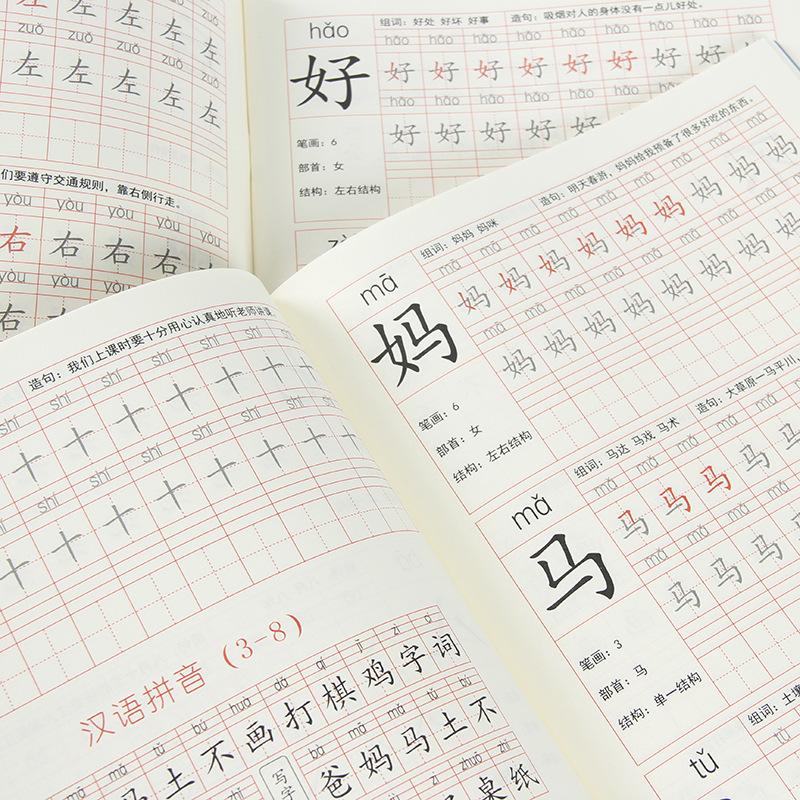 左 左 左 左 左
zuǒ zuǒ zuǒ zuǒ
左 左 左 左 左
们要遵守交通规则，靠右侧行走。
yòu yòu yòu yòu yòu
右 右 右 右 右
yòu yòu yòu yòu yòu
右 右 右 右 右
hǎo
好
组词：好处 好坏 好事
造句：吸烟对人的身体没有一点儿好处。
hǎo hǎo hǎo hǎo hǎo hǎo hǎo hǎo
好 好 好 好 好 好 好 好
hǎo hǎo hǎo hǎo hǎo hǎo hǎo
好 好 好 好 好
笔画：6
部首：女
结构：左右结构
造句：我们上课时要十分用心认真地听老师讲课
shí shí shí shí shí shí shí
十 十 十 十 十 十 十
shí shí shí shí shí shí shí
十 十 十 十 十 十 十
汉语拼音（3-8）
mǎ tǔ bù huà dǎ qí jī zì cí
马 土 不 画 打 棋 鸡 字 词
写字
bà mā mǎ tǔ bù
爸 妈 马 土 不
zhuō zhǐ
桌 纸
mā
妈
组词：妈妈 妈咪
造句：明天春游，妈妈给我预备了很多好吃的东西。
mā mā mā mā mā mā mā mā
妈 妈 妈 妈 妈 妈 妈 妈 妈
mā mā mā mā mā mā mā mā
妈 妈 妈 妈 妈 妈 妈 妈
笔画：6
部首：女
结构：左右结构
mǎ
马
组词：马达 马戏 马术
造句：大草原一马平川，
mǎ mǎ mǎ mǎ mǎ
马 马 马 马 马
mǎ mǎ mǎ mǎ
马 马 马 马
笔画：3
部首：马
结构：单一结构
tǔ
组词：土壤
tǔ